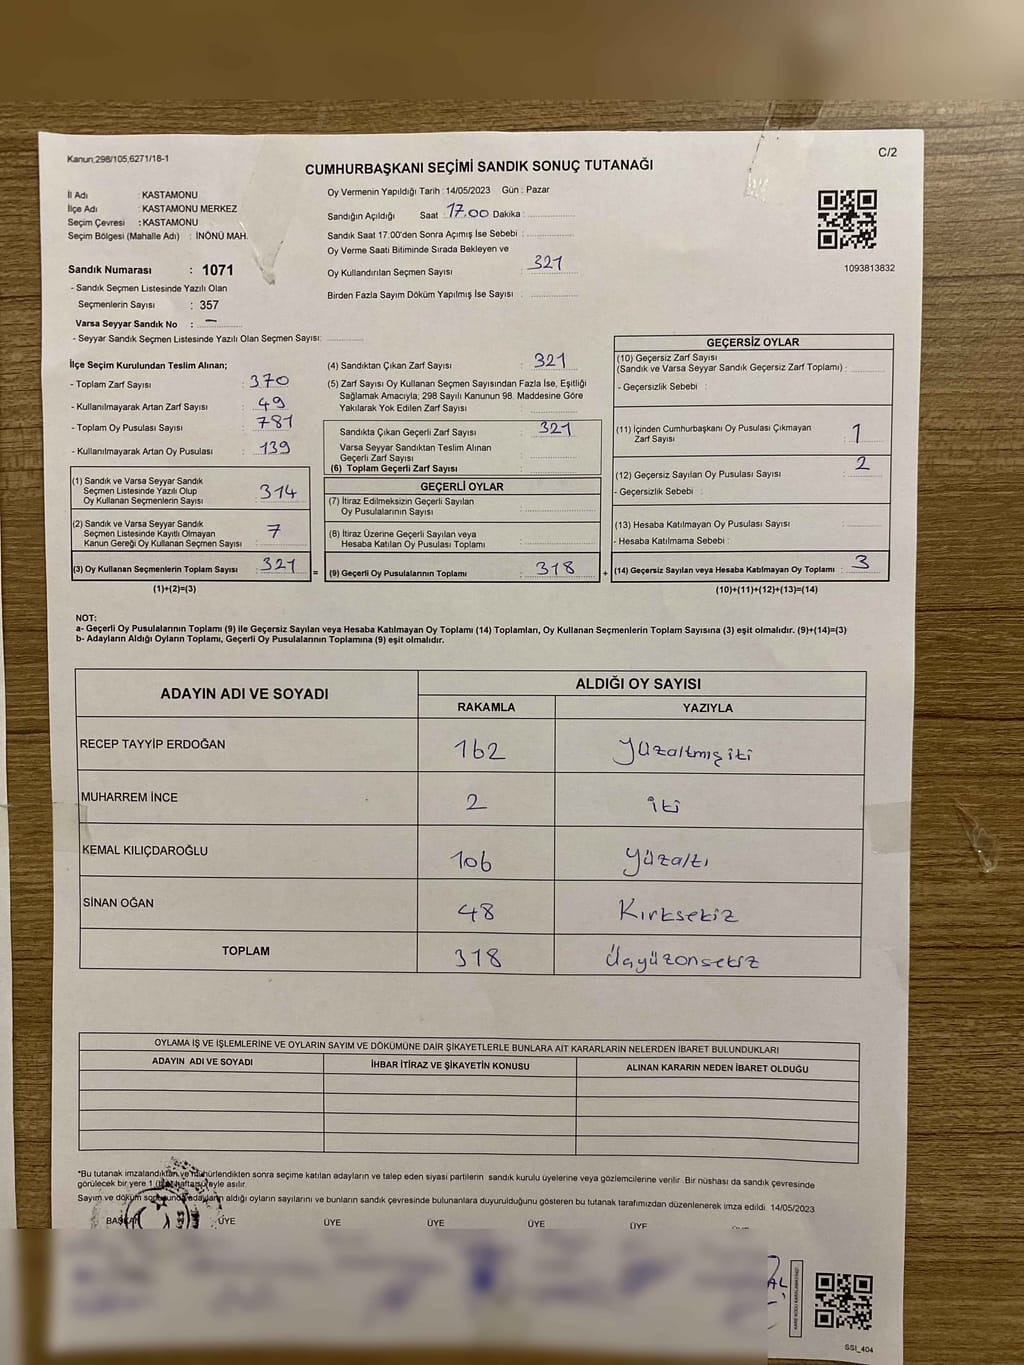 Kanun;298/105,6271/18-1
C/2
CUMHURBAŞKANI SEÇİMİ SANDIK SONUÇ TUTANAĞI
İl Adı : KASTAMONU
İlçe Adı : KASTAMONU MERKEZ
Seçim Çevresi : KASTAMONU
Seçim Bölgesi (Mahalle Adı) : İNÖNÜ MAH.
Sandık Numarası : 1071
- Sandık Seçmen Listesinde Yazılı Olan
Seçmenlerin Sayısı : 357
Varsa Seyyar Sandık No : –
- Seyyar Sandık Seçmen Listesinde Yazılı Olan Seçmen Sayısı:
Oy Vermenin Yapıldığı Tarih : 14/05/2023 Gün : Pazar
Sandığın Açıldığı Saat 17.00 Dakika :
Sandık Saat 17.00'den Sonra Açımış İse Sebebi :
Oy Verme Saati Bitiminde Sırada Bekleyen ve
Oy Kullandırılan Seçmen Sayısı : 321
Birden Fazla Sayım Döküm Yapılmış İse Sayısı :
1093813832
İlçe Seçim Kurulundan Teslim Alınan;
- Toplam Zarf Sayısı : 370
- Kullanılmayarak Artan Zarf Sayısı : 49
- Toplam Oy Pusulası Sayısı : 781
- Kullanılmayarak Artan Oy Pusulası : 139
(1) Sandık ve Varsa Seyyar Sandık
Seçmen Listesinde Yazılı Olup
Oy Kullanan Seçmenlerin Sayısı : 314
(2) Sandık ve Varsa Seyyar Sandık
Seçmen Listesinde Kayıtlı Olmayan
Kanun Gereği Oy Kullanan Seçmen Sayısı : 7
(3) Oy Kullanan Seçmenlerin Toplam Sayısı : 321 =
(1)+(2)=(3)
(4) Sandıktan Çıkan Zarf Sayısı : 321
(5) Zarf Sayısı Oy Kullanan Seçmen Sayısından Fazla İse, Eşitliği
Sağlamak Amacıyla; 298 Sayılı Kanunun 98. Maddesine Göre
Yakılarak Yok Edilen Zarf Sayısı :
Sandıkta Çıkan Geçerli Zarf Sayısı : 321
Varsa Seyyar Sandıktan Teslim Alınan
Geçerli Zarf Sayısı :
(6) Toplam Geçerli Zarf Sayısı :
GEÇERLİ OYLAR
(7) İtiraz Edilmeksizin Geçerli Sayılan
Oy Pusulalarının Sayısı :
(8) İtiraz Üzerine Geçerli Sayılan veya
Hesaba Katılan Oy Pusulası Toplamı :
(9) Geçerli Oy Pusulalarının Toplamı : 318 +
GEÇERSİZ OYLAR
(10) Geçersiz Zarf Sayısı
(Sandık ve Varsa Seyyar Sandık Geçersiz Zarf Toplamı) :
- Geçersizlik Sebebi :
(11) İçinden Cumhurbaşkanı Oy Pusulası Çıkmayan
Zarf Sayısı : 1
(12) Geçersiz Sayılan Oy Pusulası Sayısı : 2
- Geçersizlik Sebebi :
(13) Hesaba Katılmayan Oy Pusulası Sayısı :
- Hesaba Katılmama Sebebi :
(14) Geçersiz Sayılan veya Hesaba Katılmayan Oy Toplamı : 3
(10)+(11)+(12)+(13)=(14)
NOT:
a- Geçerli Oy Pusulalarının Toplamı (9) ile Geçersiz Sayılan veya Hesaba Katılmayan Oy Toplamı (14) Toplamları, Oy Kullanan Seçmenlerin Toplam Sayısına (3) eşit olmalıdır. (9)+(14)=(3)
b- Adayların Aldığı Oyların Toplamı, Geçerli Oy Pusulalarının Toplamına (9) eşit olmalıdır.
ADAYIN ADI VE SOYADI ALDIĞI OY SAYISI
RAKAMLA YAZIYLA
RECEP TAYYİP ERDOĞAN 162 Yüzaltmışiki
MUHARREM İNCE 2 iki
KEMAL KILIÇDAROĞLU 106 Yüzaltı
SİNAN OĞAN 48 Kırksekiz
TOPLAM 318 Üçyüzonsekiz
OYLAMA İŞ VE İŞLEMLERİNE VE OYLARIN SAYIM VE DÖKÜMÜNE DAİR ŞİKAYETLERLE BUNLARA AİT KARARLARIN NELERDEN İBARET BULUNDUKLARI
ADAYIN ADI VE SOYADI İHBAR İTİRAZ VE ŞİKAYETİN KONUSU ALINAN KARARIN NEDEN İBARET OLDUĞU
*Bu tutanak imzalandıktan ve mühürlendikten sonra seçime katılan adayların ve talep eden siyasi partilerin sandık kurulu üyelerine veya gözlemcilerine verilir. Bir nüshası da sandık çevresinde
görülecek bir yere 1 (bir) hafta süreyle asılır.
Sayım ve döküm sonucunda adayların aldığı oyların sayılarını ve bunların sandık çevresinde bulunanlara duyurulduğunu gösteren bu tutanak tarafımızdan düzenlenerek imza edildi. 14/05/2023
BAŞKAN ÜYE ÜYE ÜYE ÜYE ÜYE
SSI_404